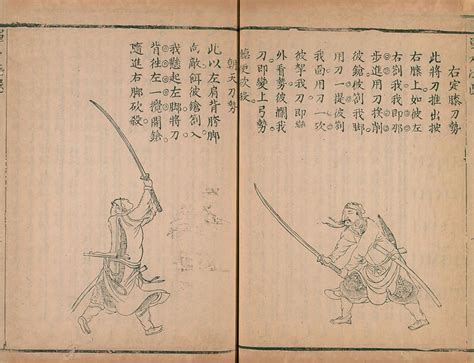 右定膝刀勢
此將刀推出按
右膝上如彼左
右劄我我
用刀提削
彼鎗彼劄我即
用刀一劄我
我面用刀一砍
彼掣我刀即
外看勢彼攔我
刀即變上弓勢
更砍殺
朝天刀勢
此以左肩背膝腳
向敵餌彼鎗劄入
我懸起左腳將刀
背往左一攪開鎗
隨進右腳砍殺